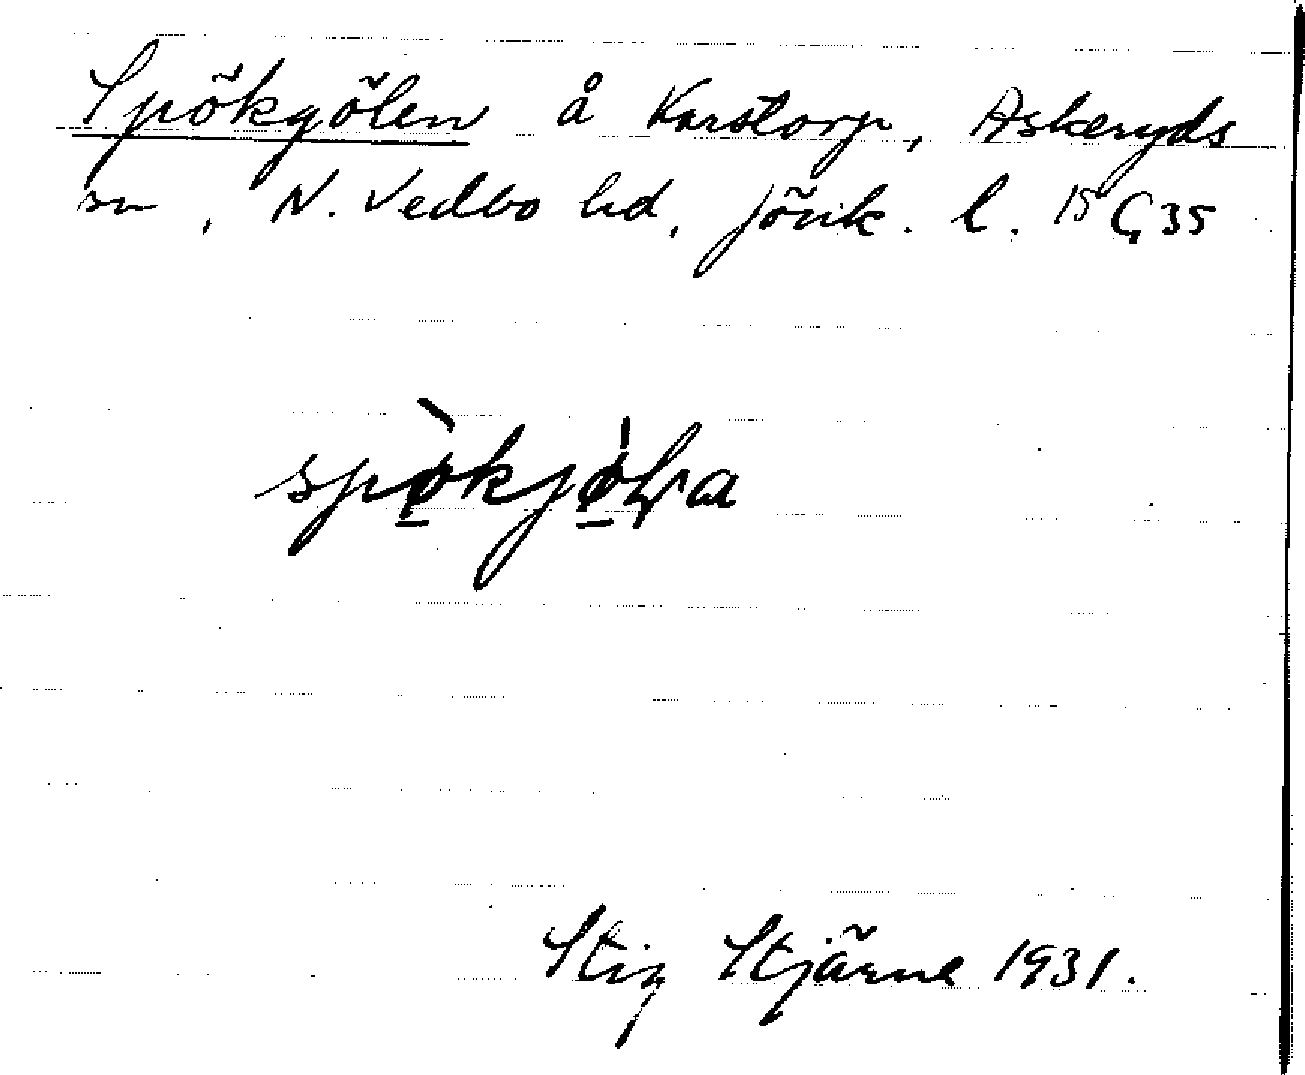 Spökgölen å Karstorp, Askeryds
sn, N. Vedbo hd, Jönk. l. 15 G 35
Stig Stjärne 1931.